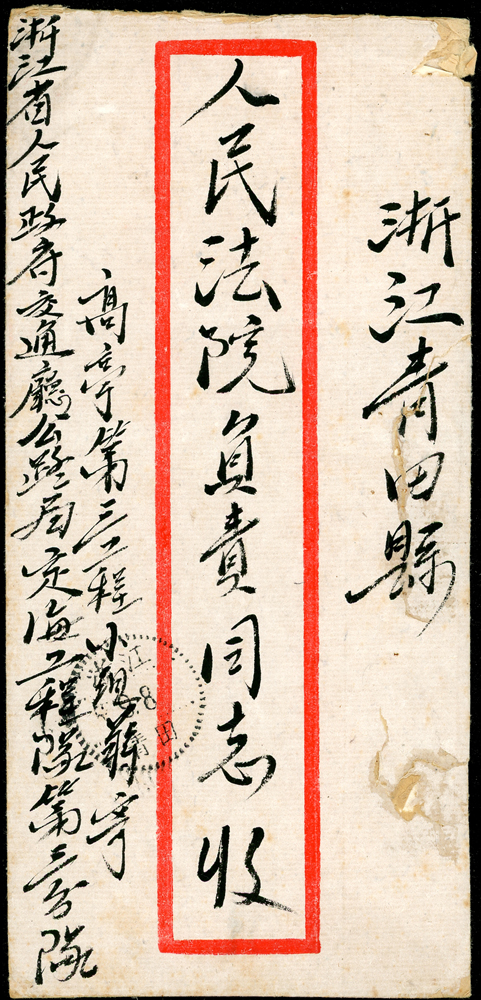 浙江青田縣
人民法院負責同志收
浙江省人民政府交通廳公路局定海工程隊第三分隊
高亭第三工程小組蘇寄
浙江
8
青田